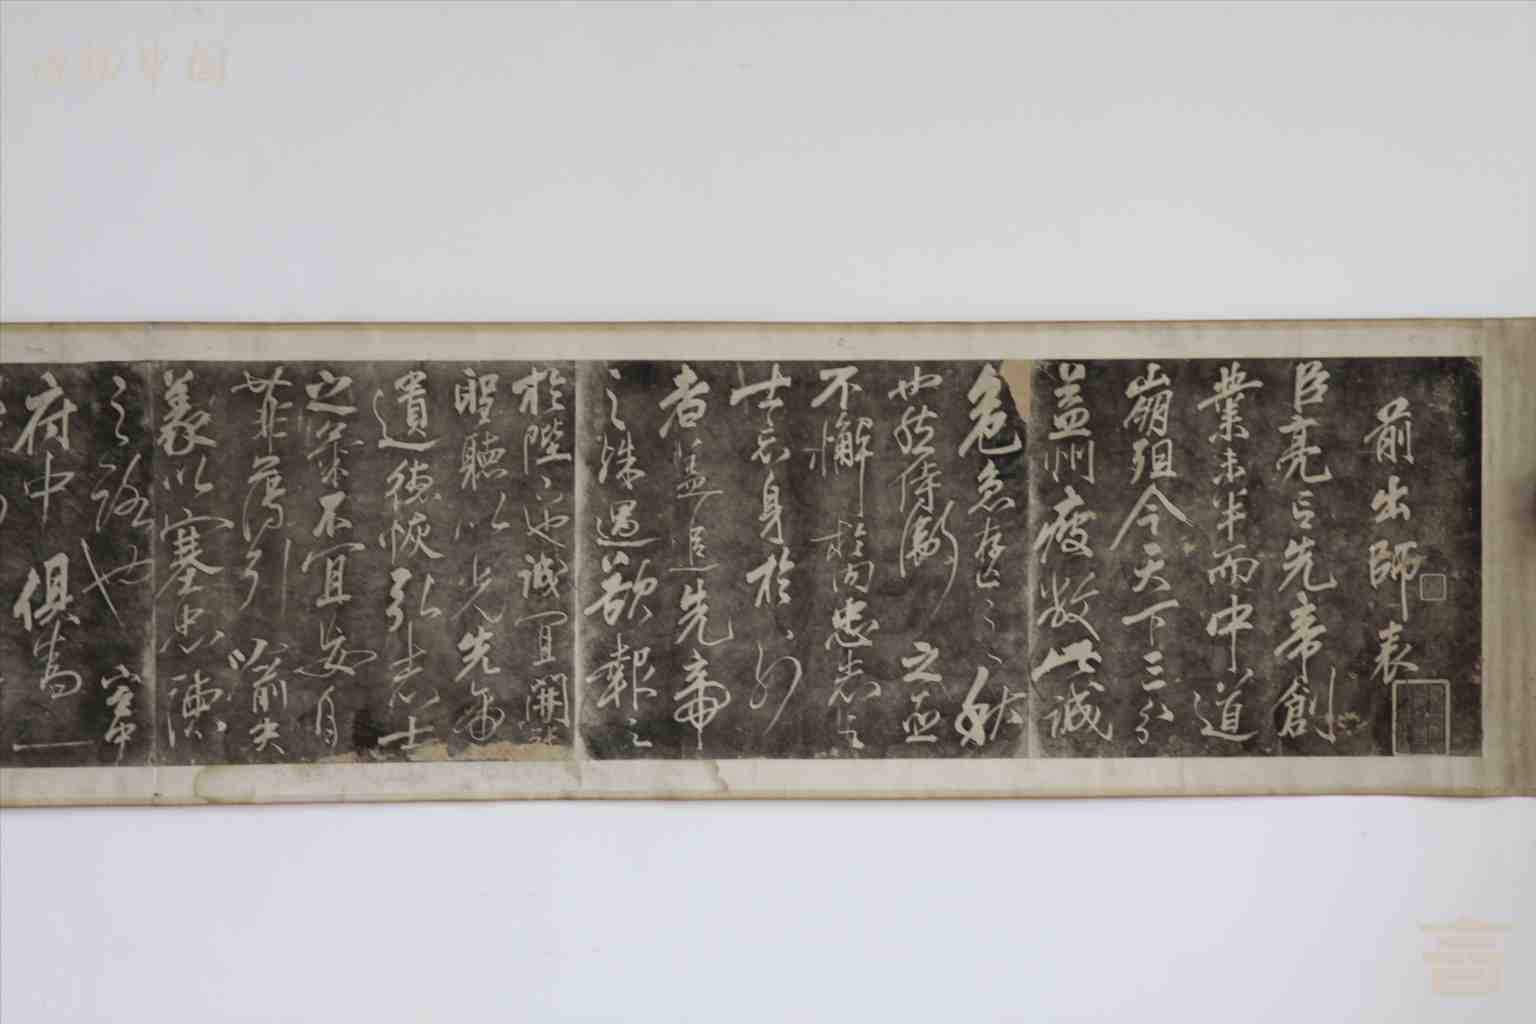 前出師表
臣亮言先帝創
業未半而中道
崩殂今天下三分
益州疲敝此誠
危急存亡之秋
也然侍衛之臣
不懈於内忠志之
士忘身於外
者盖追先帝
之殊遇欲報之
於陛下也誠宜開張
聖聽以光先帝
遺德恢弘志士
之氣不宜妄自
菲薄引喻失
義以塞忠諫
之路也宮中
府中俱為一